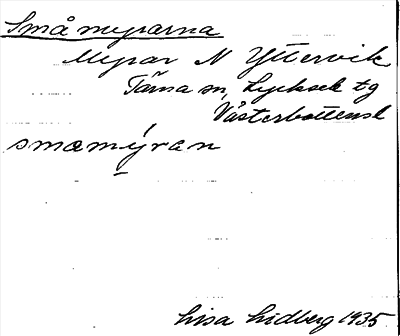 Småmyrarna
Myrar N Yttervik
Tärna sn, Lycksele tg
Västerbottensl
smœmýran
Lisa Lidberg 1935